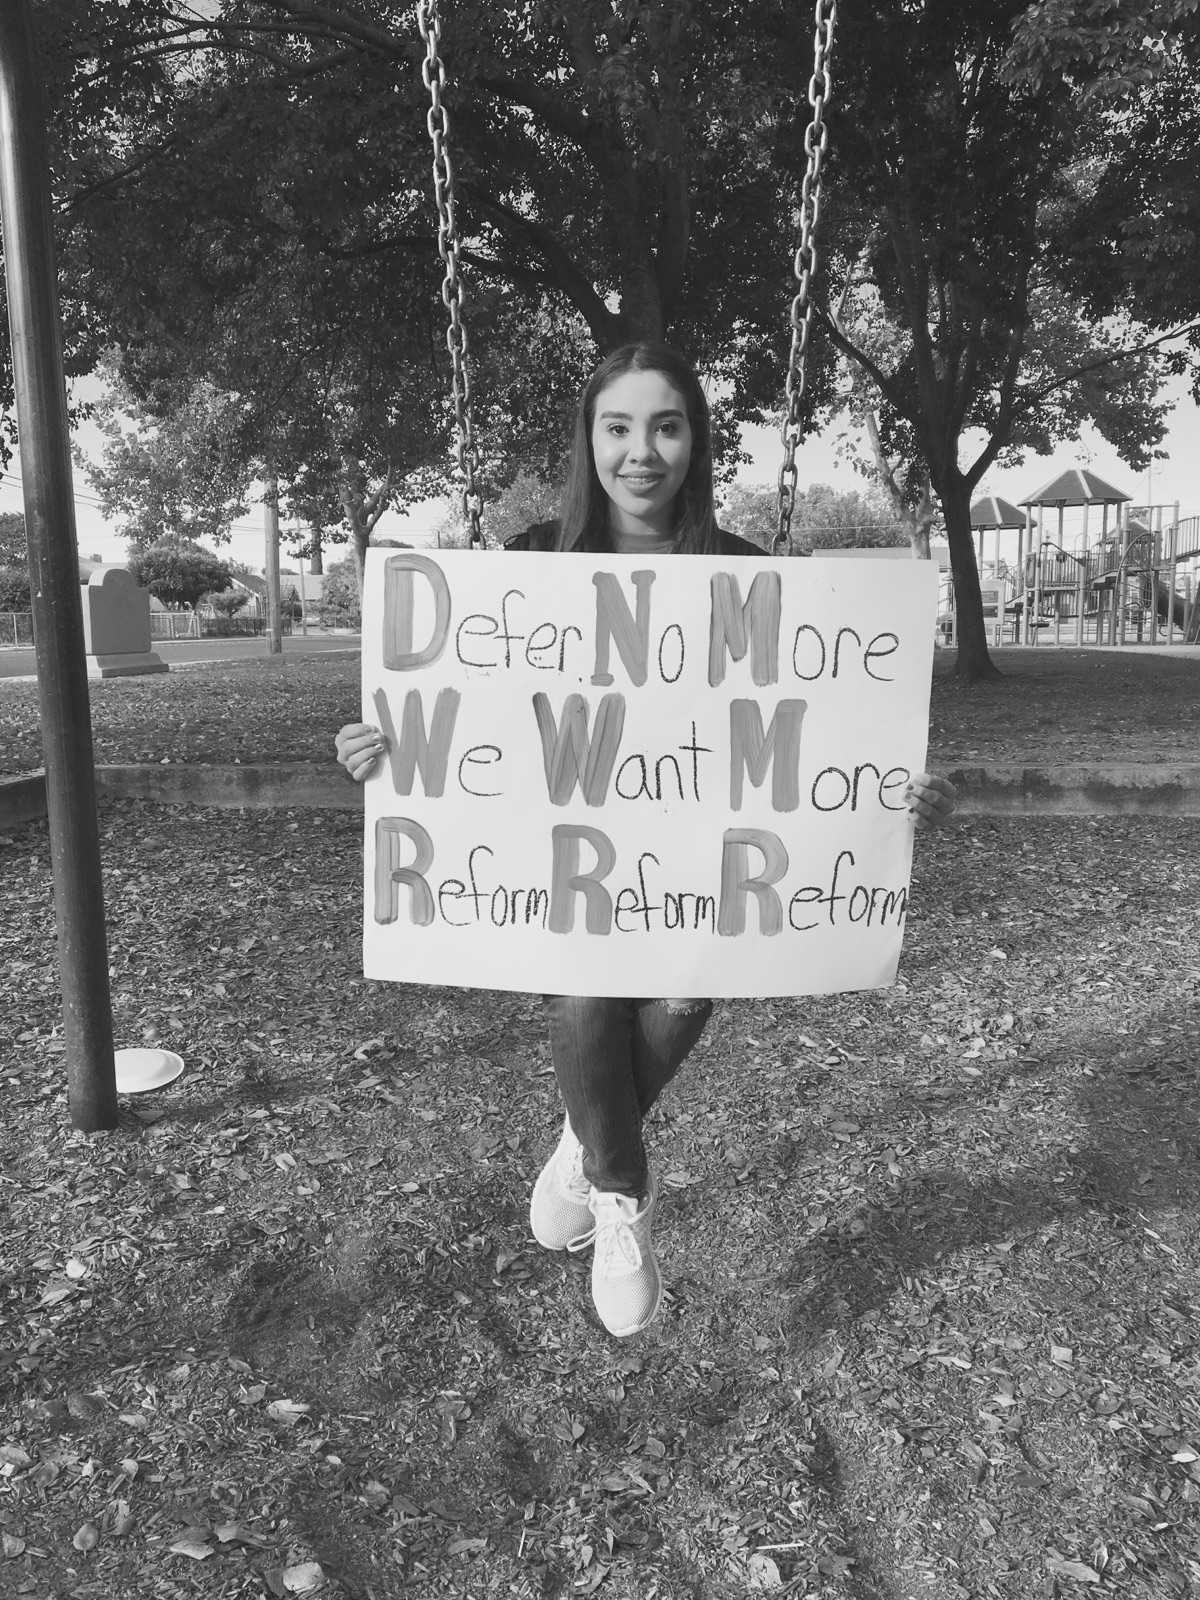 Defer. No More
We Want More
Reform Reform Reform